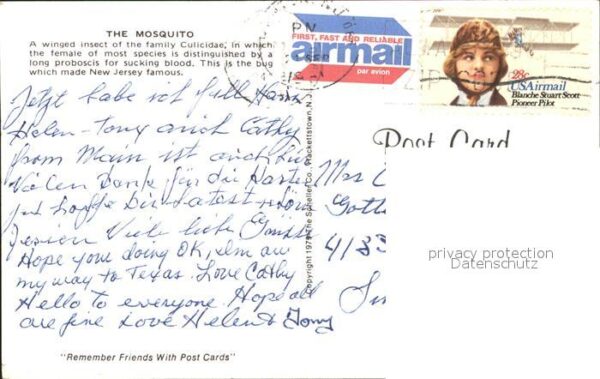 THE MOSQUITO
A winged insect of the family Culicidae, in which
the female of most species is distinguished by a
long proboscis for sucking blood. This is the bug
which made New Jersey famous.
Jetzt habe ich full Haus
Helen - Tony and Cathy
from Mam ist auch hier
Vielen Dank für die Karte
ich hoffe Du hattest schöne
Ferien Viele liebe Grüsse
Hope your doing OK, Im on
my way to Texas. Love Cathy
Hello to everyone. Hope all
are fine Love Helen & Tony
"Remember Friends With Post Cards"
Copyright 1979 The Scheller Co., Hackettstown, N.J.
PM
FIRST, FAST AND RELIABLE
airmail
par avion
28c
USAirmail
Blanche Stuart Scott
Pioneer Pilot
Post Card
Mrs
Gott
4133
privacy protection
Datenschutz